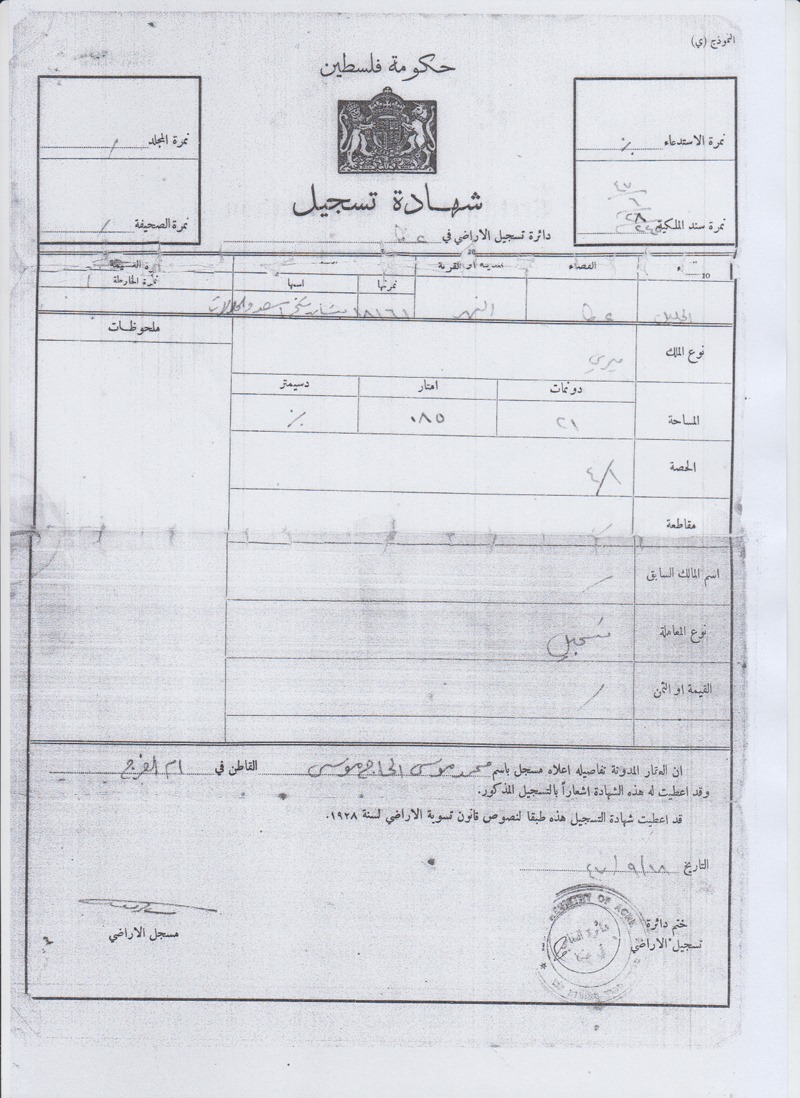 النموذج (ي)
حكومة فلسطين
نمرة الاستدعاء ٪
نمرة المجلد /
شهادة تسجيل
نمرة سند الملكية
نمرة الصحيفة /
دائرة تسجيل الاراضي في عكا
القضاء
او القرية
نمرتها
اسمها
نمرة الخارطة
عكا
النهر
١٨١٦١
ملحوظات
نوع الملك
ميري
دونمات
امتار
دسيمتر
المساحة
٢١
٠٨٥
٪
الحصة
٤/١
مقاطعة
اسم المالك السابق
/
نوع المعاملة
تسجيل
القيمة او الثمن
/
ان العقار المدونة تفاصيله اعلاه مسجل باسم محمد موسى الحاج موسى القاطن في ام الفرج
وقد اعطيت له هذه الشهادة اشعاراً بالتسجيل المذكور.
قد اعطيت شهادة التسجيل هذه طبقا لنصوص قانون تسوية الاراضي لسنة ١٩٢٨.
التاريخ ١٨/٩/٤٧
ختم دائرة
تسجيل الاراضي
مسجل الاراضي
OF ACRE